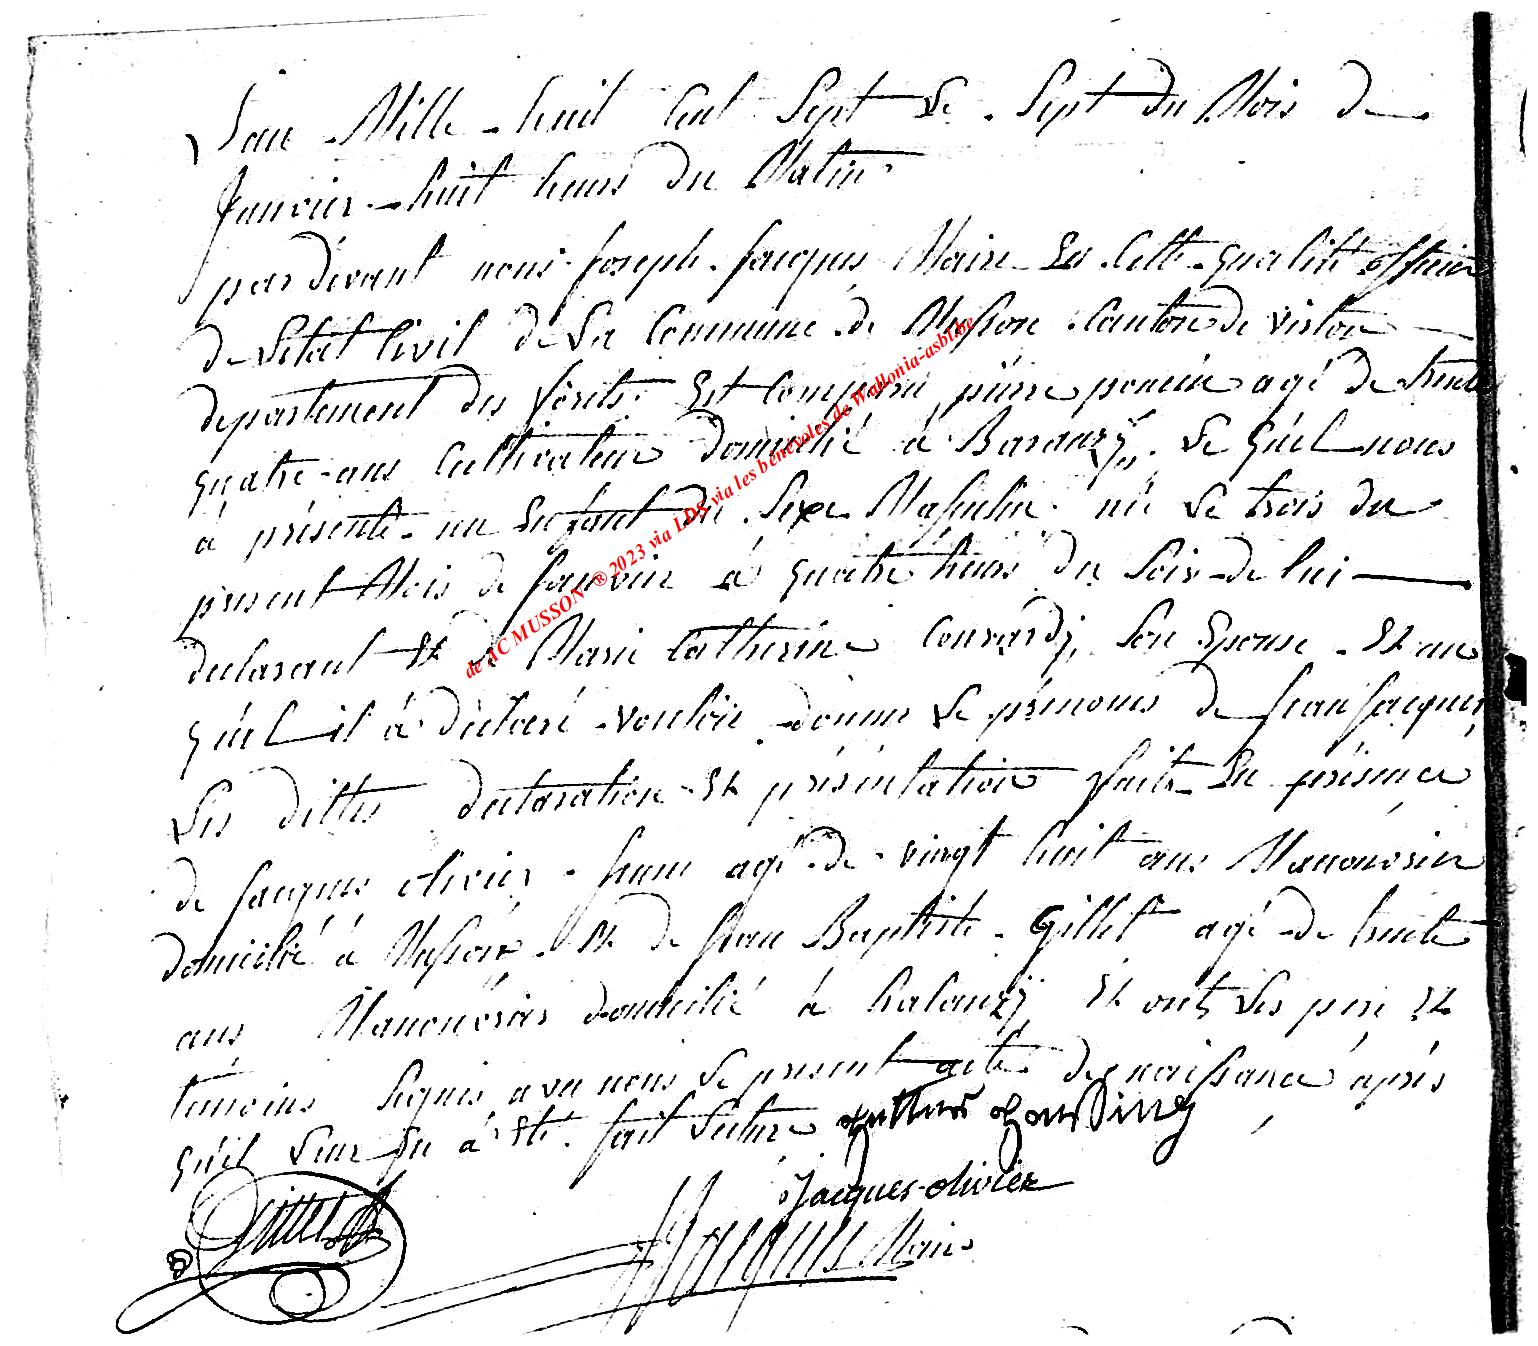 L'an Mille huit Cent Sept Le Sept du Mois de
Janvier huit heures du Matin
pardévant nous Joseph Jacques Maire En Cette qualité officier
de Létat Civil de La Commune de Musson Canton de virton
departement des forêts Est Comparu pierre poncin agé de trente
quatre ans Cultivateur domicilié à Baranzÿ Le quel nous
à présenté un Enfant du Sexe Masculin né Le trois du
present Mois de Janvier à quatre heures du Soir de lui
declarant Et de Marie Catherine Conrardy Son Epouse Et au
quel il à déclaré vouloir donner Le prénoms de Jean Jacques
Les dittes declaration Et présentation faite En présence
de Jacques olivier agé de vingt huit ans Manouvrier
domicilié à Musson Et de Jean Baptiste Gillet agé de trente
ans Manouvrier domicilié à halanzÿ Et onts Les pere Et
temoins Signés avec nous Le present acte de naissance après
qu'il Leur En à Eté fait Lecture
Jacques olivier
Gillet
J Jacques Maire
de AC MUSSON ® 2023 via LDS via les bénévoles de Wallonia-asbl.be